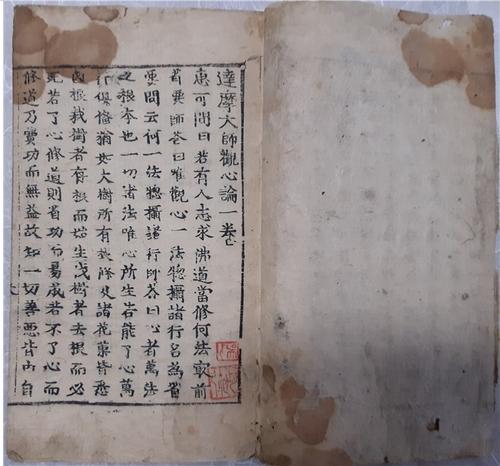 達摩大師觀心論一卷
惠可問曰若有人志求佛道當修何法寂前
省要師荅曰唯觀心一法惣攝諸行名為省
要問云何一法惣攝諸行師荅曰心者萬法
之根本也一切諸法唯心所生若能了心萬
行俱俻猶如大樹所有枝條及諸花菓皆悉
因根栽樹者存根而始生伐樹者去根而必
死若了心修道則省功而易成若不了心而
修道乃費功而無益故知一切善惡皆由自